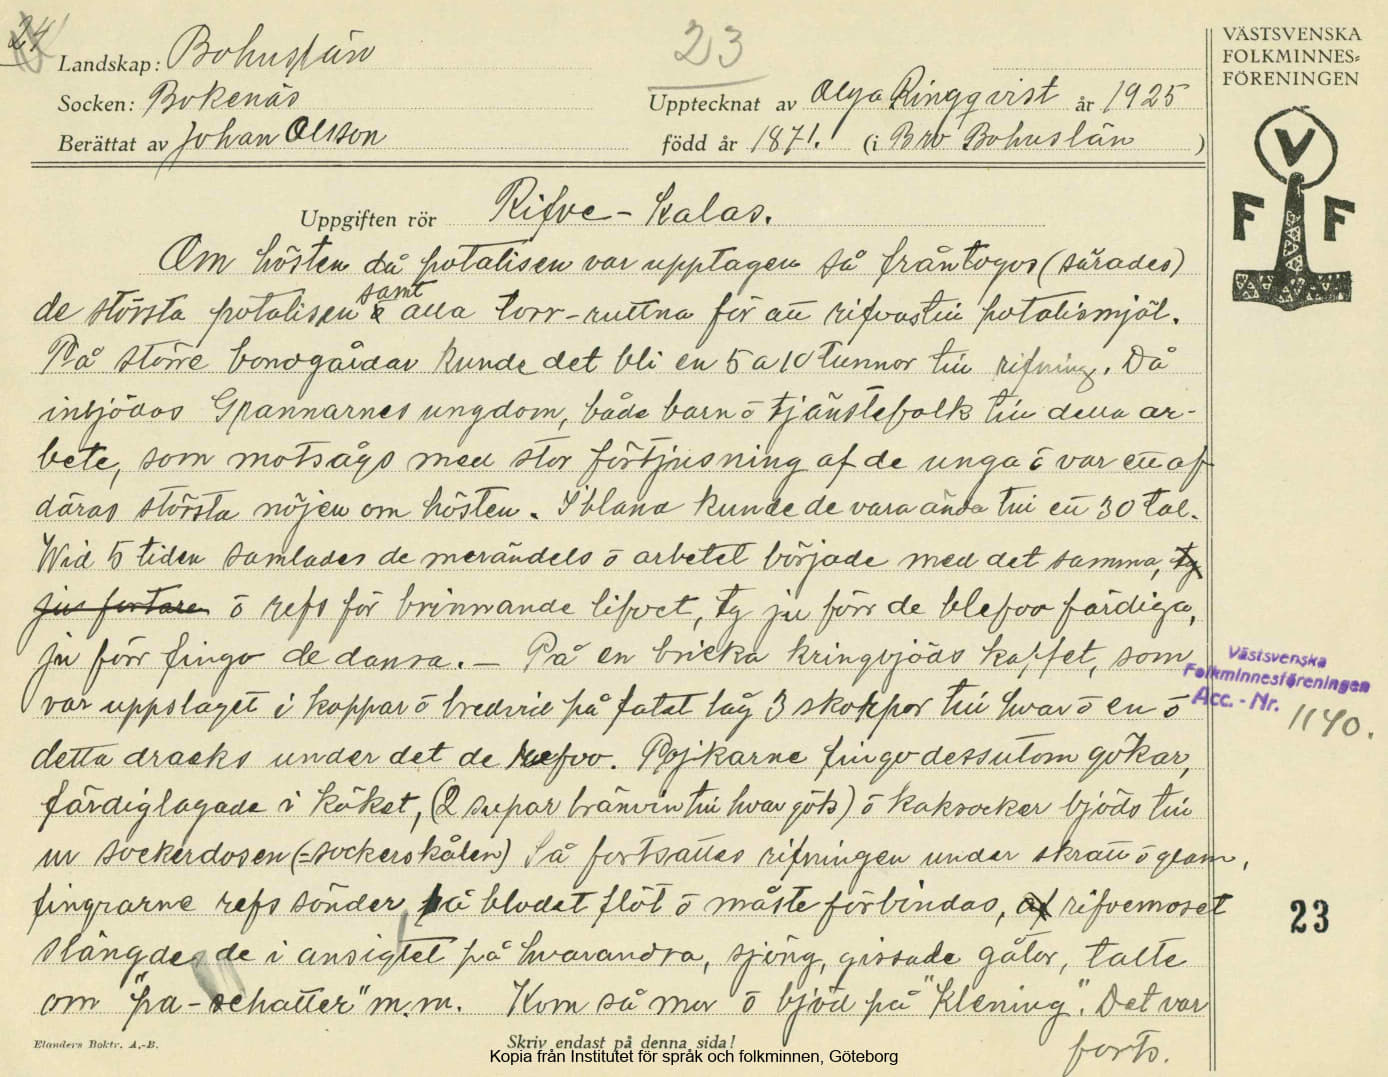 24
Landskap: Bohuslän
Socken: Bokenäs
Berättat av Johan Olsson
23
Upptecknat av Olga Ringqvist år 1925
född år 1871. (i Bro Bohuslän )
VÄSTSVENSKA
FOLKMINNES-
FÖRENINGEN
V
F F
Uppgiften rör Rifve-kalas.
Om hösten då potatisen var upptagen så fråntogos (särades)
de största potatisen samt alla torr-ruttna för att rifvas till potatismjöl.
På större bondgårdar kunde det bli en 5 a 10 tunnor till rifning. Då
inbjödos Grannarnes ungdom, både barn ō tjänstefolk till detta ar-
bete, som motsågs med stor förtjusning af de unga ō var ett af
däras största nöjen om hösten. Ibland kunde de vara ända till ett 30 tal.
Wid 5 tiden samlades de merändels ō arbetet började med det samma, ty
ju fortare ō refs för brinnande lifvet, ty ju förr de blefvo färdiga,
ju förr fingo de dansa. – På en bricka kringbjöds kaffet, som
var uppslaget i koppar ō bredvid på fatet låg 3 skorpor till hvar ō en ō
detta dracks under det de refvo. Pojkarne fingo dessutom gökar,
färdiglagade i köket, (2 supar bränvin till hvar gök) ō kaksocker bjöds till
ur sockerdosen (=sockerskålen) Så fortsattes rifningen under skratt ō glam,
fingrarne refs sönder så blodet flöt ō måste förbindas, af rifvemoset
slängdes de i ansigtet på hvarandra, sjöng, gissade gåtor, talte
om "pa-schatter" m.m. Kom så mor ō bjöd på "Klening". Det var
forts.
Elanders Boktr. A.-B.
Skriv endast på denna sida!
Kopia från Institutet för språk och folkminnen, Göteborg
Västsvenska
Folkminnesföreningen
Acc.-Nr. 1140.
23